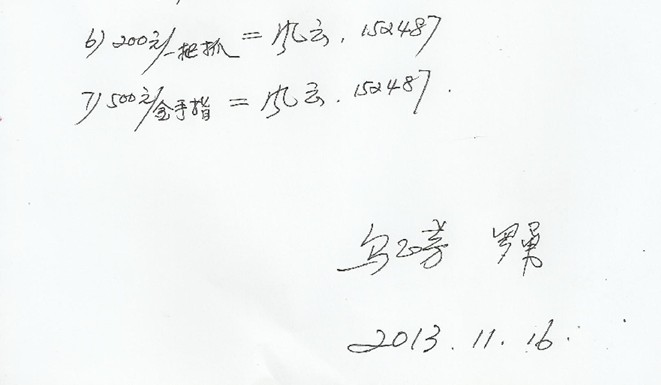 6) 200元/一把抓 = 风云. 152487
7) 500元/金手指 = 风云. 152487.
乌 芳 罗勇
2013. 11. 16.